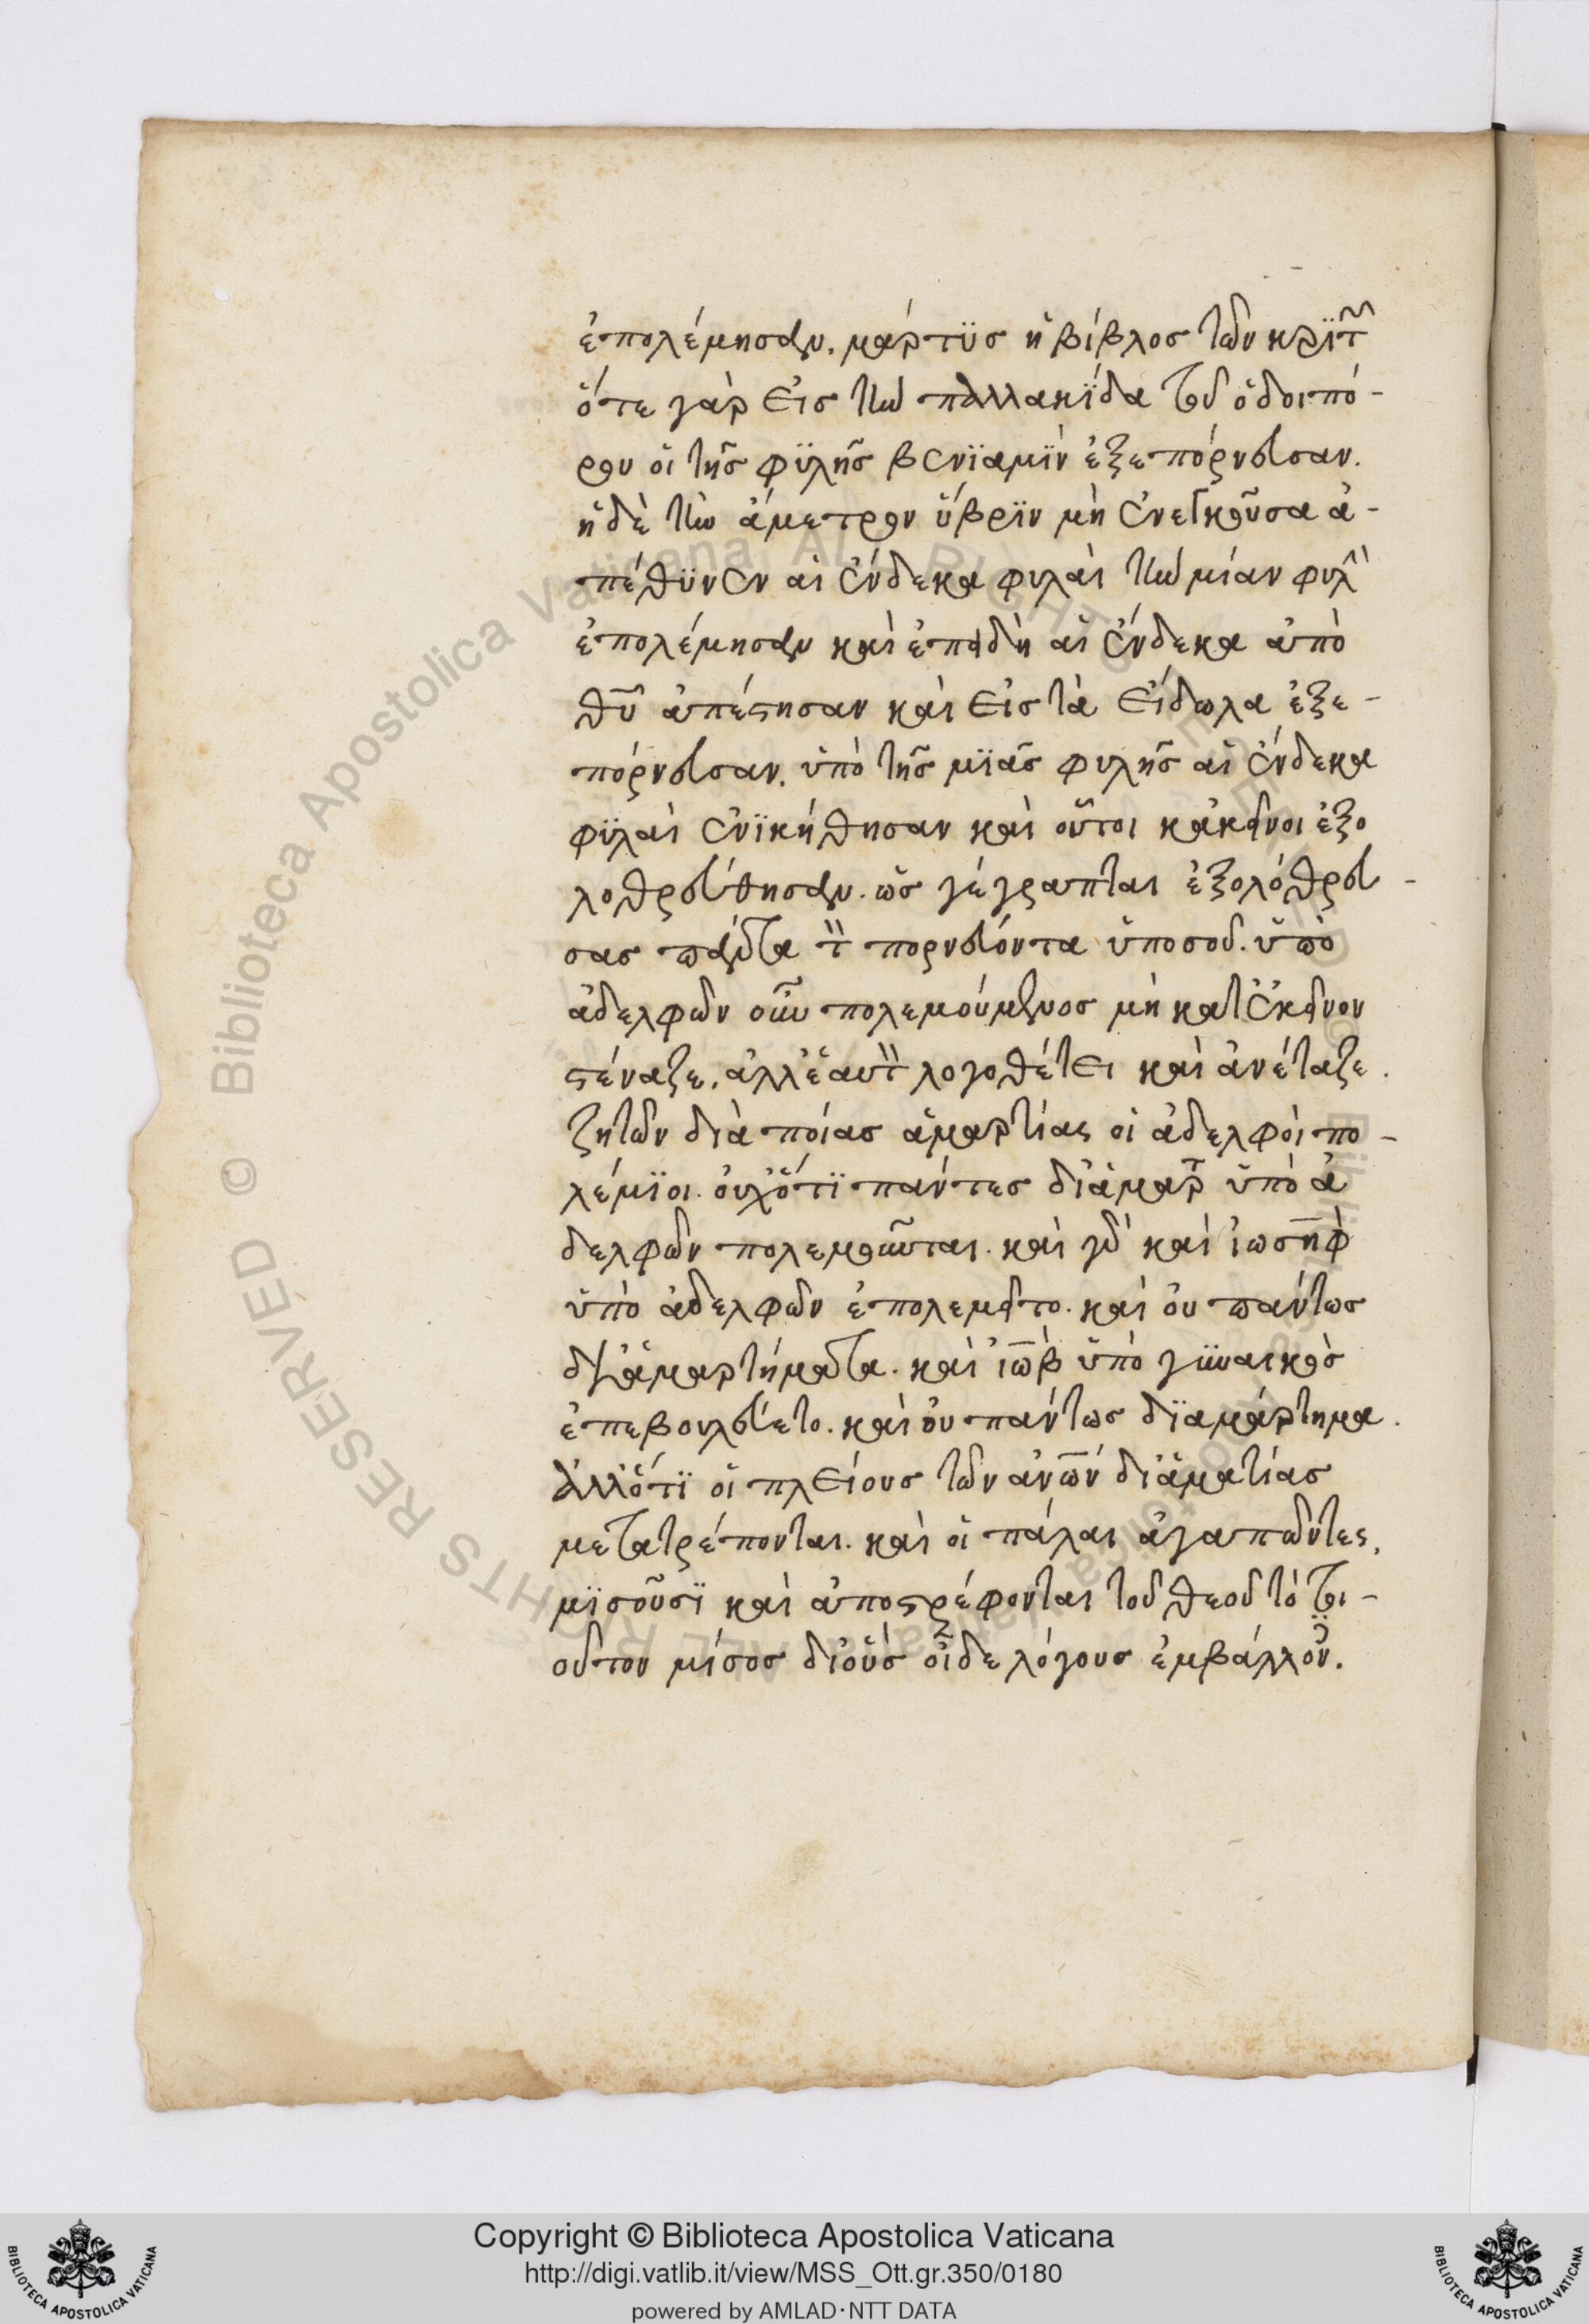 ἐπολέμησαν. μάρτϋσ ἡ βίβλοσ τῶν κρϊτ̃
ὅτε γὰρ εἰσ τὴν παλλακΐδα τοῦ ὁδοιπό-
ρου οἱ τῆσ φϋλῆσ βενϊαμῒν ἐξεπόρνευσαν.
ἡ δὲ τὴν ἄμετρον ὕβρϊν μὴ ἐνεγκοῦσα ἀ-
πέθϋνεν αἱ ἕνδεκα φυλαὶ τὴν μίαν φυλὴ
ἐπολέμησαν καὶ ἐπειδὴ αἱ ἕνδεκα ἀπὸ
θυ̅ ἀπέστησαν καὶ εἰσ τὰ εἴδωλα ἐξε-
πόρνευσαν. ὑπὸ τῆσ μϊᾶσ φυλῆσ αἱ ἕνδεκα
φϋλαὶ ἐνϊκήθησαν καὶ οὗτοι κἀκεῖνοι ἐξο
λοθρεύθησαν. ὡσ γέγραπται ἐξολόθρευ-
σασ πάντα τ̏ πορνεύοντα ἀπὸ σοῦ. ὑπὸ
ἀδελφῶν οὖν πολεμούμενοσ μὴ κατ ἐκεῖνον
στέναζε. ἀλλ ἑαυτ̏ λογοθέτει καὶ ἀνέταζε.
ζητῶν διὰ ποίασ ἁμαρτίας οἱ ἀδελφοὶ πο-
λέμϊοι. οὐχ ὅτϊ παντεσ δι ἁμαρτ̃ ὑπὸ ἀ
δελφῶν πολεμοῦνται. καὶ γὰρ καὶ ἰωσὴφ
ὑπὸ ἀδελφῶν ἐπολεμεῖτο. καὶ οὐ πάντωσ
δι ἁμαρτήματα. καὶ ἰὼβ ὑπὸ γϋναικὸσ
ἐπεβουλεύετο. καὶ οὐ πάντωσ δϊ αμάρτημα.
ἀλλ ὅτϊ οἱ πλείουσ τῶν ἀνω̅ν δι ἁματίασ
μετατρέπονται. καὶ οἱ πάλαι ἀγαπῶντες,
μϊσοῦσϊ καὶ ἀποστρέφονται τοῦ θεοῦ τὸ τοι-
οῦτον μίσοσ δι οὓσ οἶδε λόγουσ ἐμβάλλον̃.
Copyright © Biblioteca Apostolica Vaticana
http://digi.vatlib.it/view/MSS_Ott.gr.350/0180
powered by AMLAD·NTT DATA
BIBLIOTECA APOSTOLICA VATICANA
BIBLIOTECA APOSTOLICA VATICANA